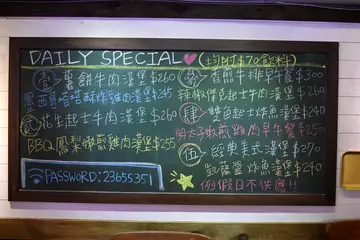 DAILY SPECIAL ♥ (均附$70飲料)
壹 薯餅牛肉漢堡$260
墨西哥塔塔酥炸雞肉漢堡$245
貳 花生起士牛肉漢堡$260
BBQ鳳梨煎雞肉漢堡$255
PASSWORD:23655351
參 香煎牛排早午餐$300
辣椒傑克起士牛肉漢堡$260
肆 雙倍起士炸魚漢堡$240
明太子嫩煎雞肉早午餐$250
伍 經典美式漢堡$270
凱薩醬炸魚漢堡$240
例假日不供應!!